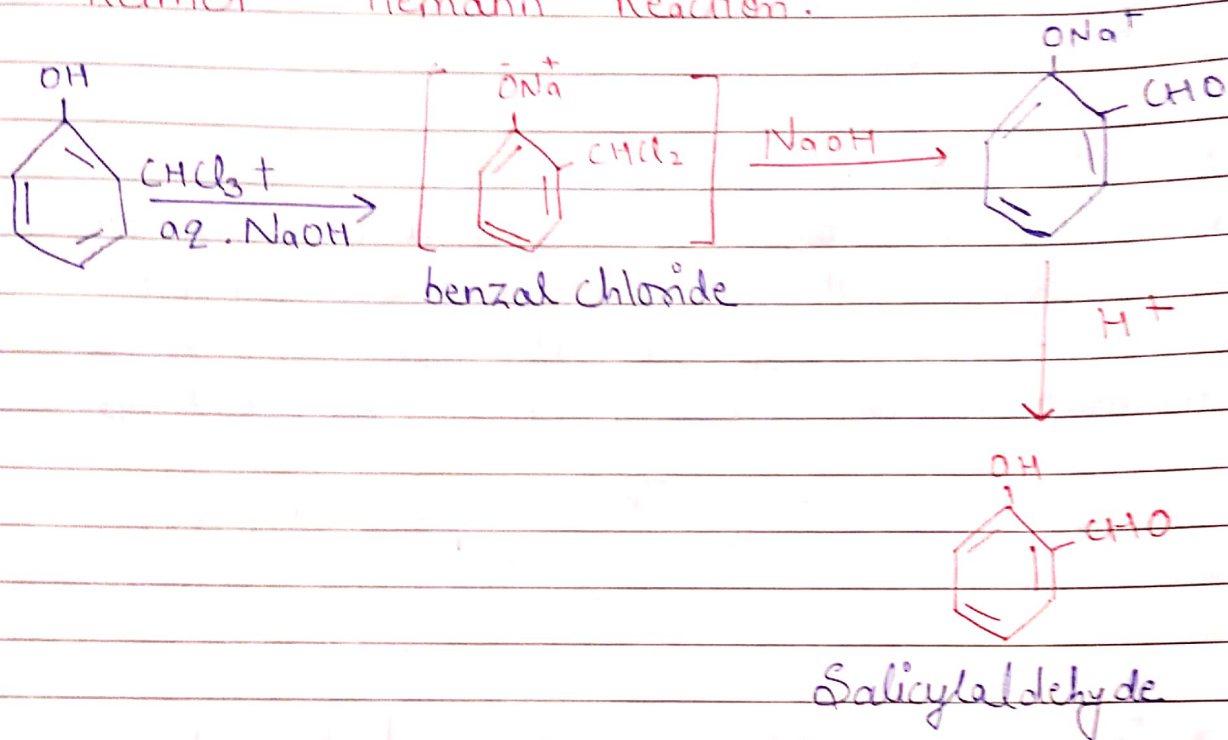 Reaction.
OH
CHCl₃ +
aq. NaOH
ŌNa⁺
CHCl₂
benzal chloride
NaOH
ONa⁺
CHO
H⁺
OH
CHO
Salicylaldehyde